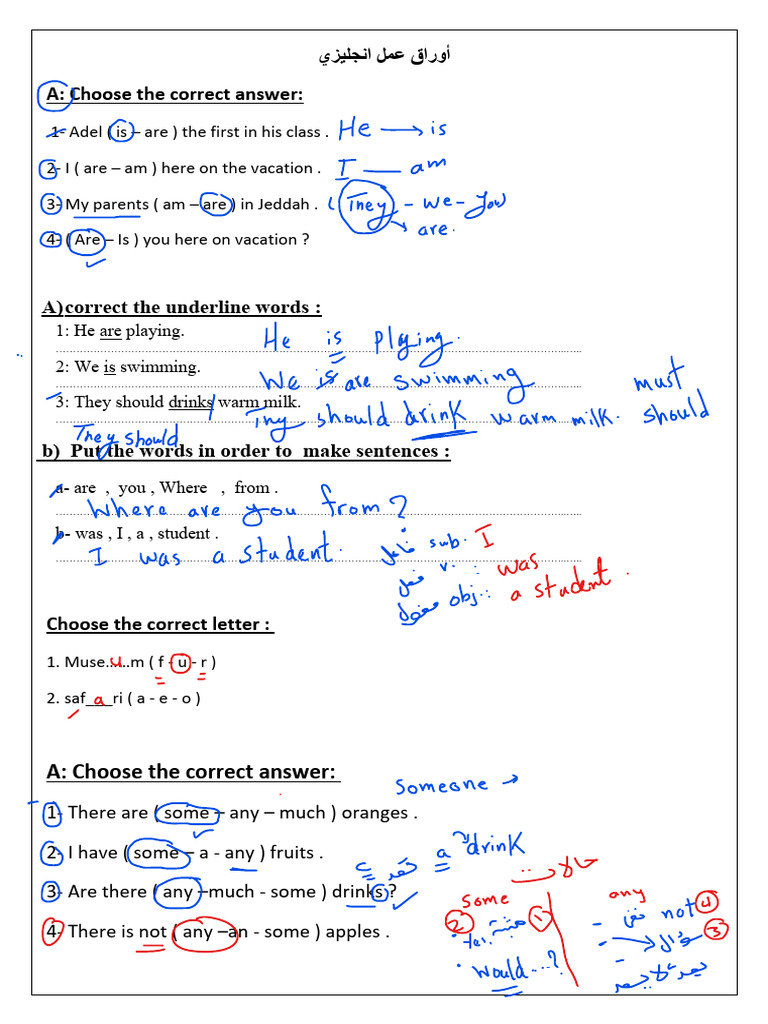 أوراق عمل انجليزي
A: Choose the correct answer:
1- Adel ( is – are ) the first in his class . He → is
2- I ( are – am ) here on the vacation . I — am
3- My parents ( am – are ) in Jeddah . ( They - we - you
→ are.
4- ( Are – Is ) you here on vacation ?
A)correct the underline words :
1: He are playing. He is playing.
2: We is swimming. We is are swimming must
3: They should drinks warm milk. They should drink warm milk. should
They should
b) Put the words in order to make sentences :
a- are , you , Where , from .
Where are you from?
b- was , I , a , student .
I was a student. فاعل sub. I
فعل v. : was
مفعول obj.: a student .
Choose the correct letter :
1. Muse..u..m ( f - u - r )
2. saf__a__ri ( a - e - o )
A: Choose the correct answer:
Someone →
1- There are ( some – any – much ) oranges .
2- I have ( some – a - any ) fruits . a drink
حالات
3- Are there ( any –much - some ) drinks ?
some any
4- There is not ( any –an - some ) apples .
2 1 نفي not 4
سؤال 3
would...?